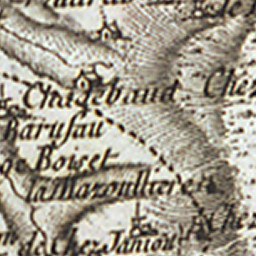 de
Chadebaud
Chez
Barusau
Boisset
la Mazoulliere
Chez
de Chez Janiou